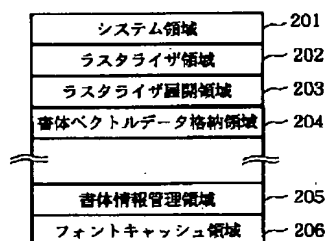 システム領域 201
ラスタライザ領域 202
ラスタライザ展開領域 203
書体ベクトルデータ格納領域 204
書体情報管理領域 205
フォントキャッシュ領域 206